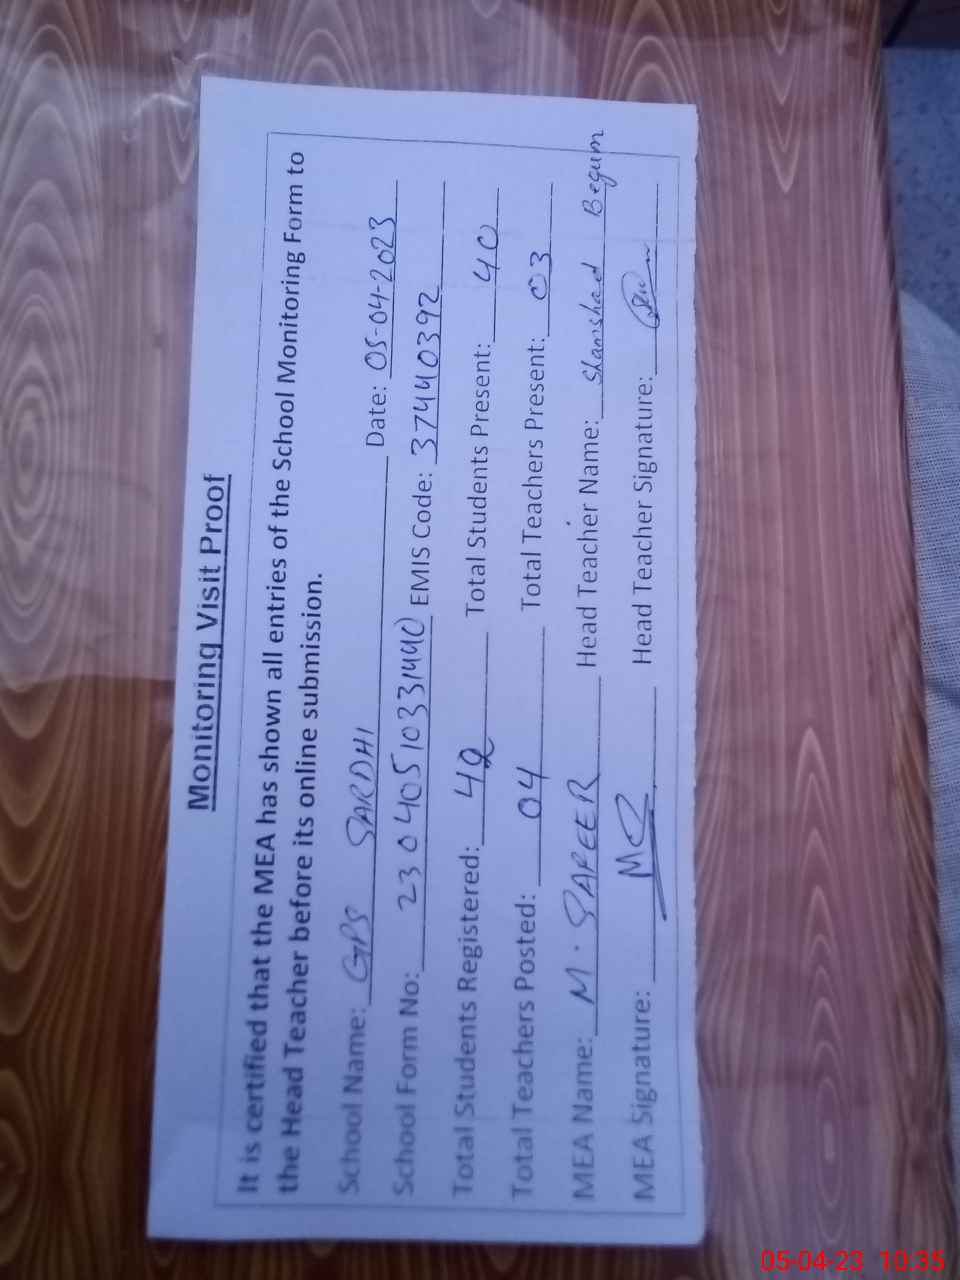 Monitoring Visit Proof
It is certified that the MEA has shown all entries of the School Monitoring Form to
the Head Teacher before its online submission.
School Name: GPS SARDHI Date: 05-04-2023
School Form No: 23040510331440 EMIS Code: 37440392
Total Students Registered: 42 Total Students Present: 40
Total Teachers Posted: 04 Total Teachers Present: 03
MEA Name: M. SAFEER Head Teacher Name: Shamshad Begum
MEA Signature: Head Teacher Signature:
05-04-23 10:35